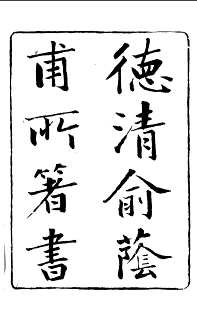 徳清俞蔭
甫所箸書